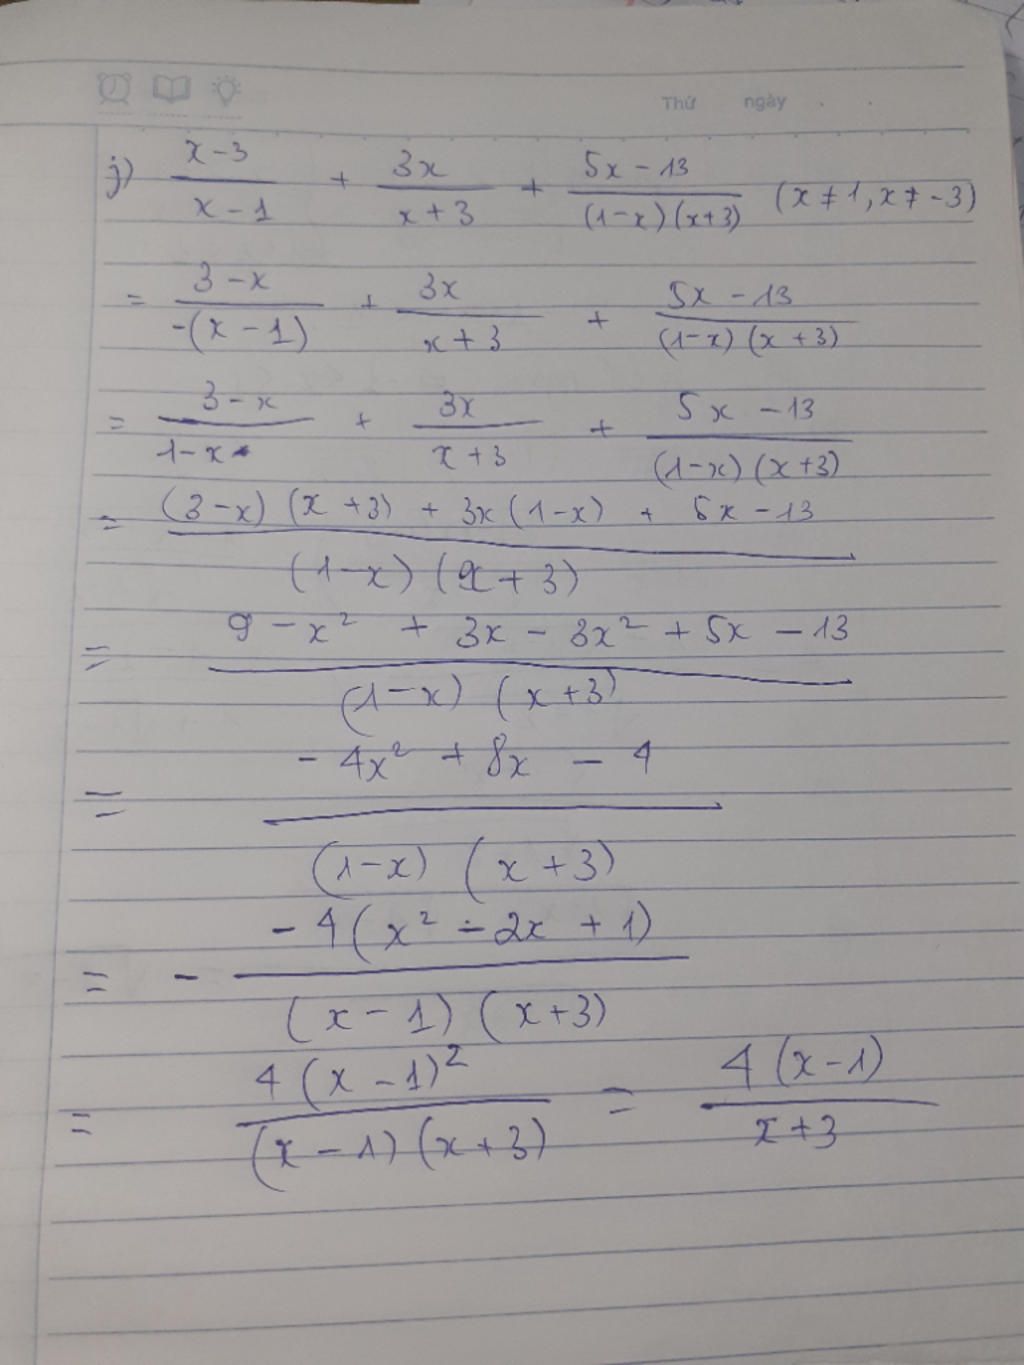 Thứ ngày
j) x-3/x-1 + 3x/x+3 + 5x-13/(1-x)(x+3) (x≠1, x≠-3)
= 3-x/-(x-1) + 3x/x+3 + 5x-13/(1-x)(x+3)
= 3-x/1-x + 3x/x+3 + 5x-13/(1-x)(x+3)
= (3-x)(x+3) + 3x(1-x) + 5x-13/(1-x)(x+3)
= 9-x² + 3x-3x²+5x-13/(1-x)(x+3)
= -4x²+8x-4/(1-x)(x+3)
= - -4(x²-2x+1)/(x-1)(x+3)
= 4(x-1)²/(x-1)(x+3) = 4(x-1)/x+3